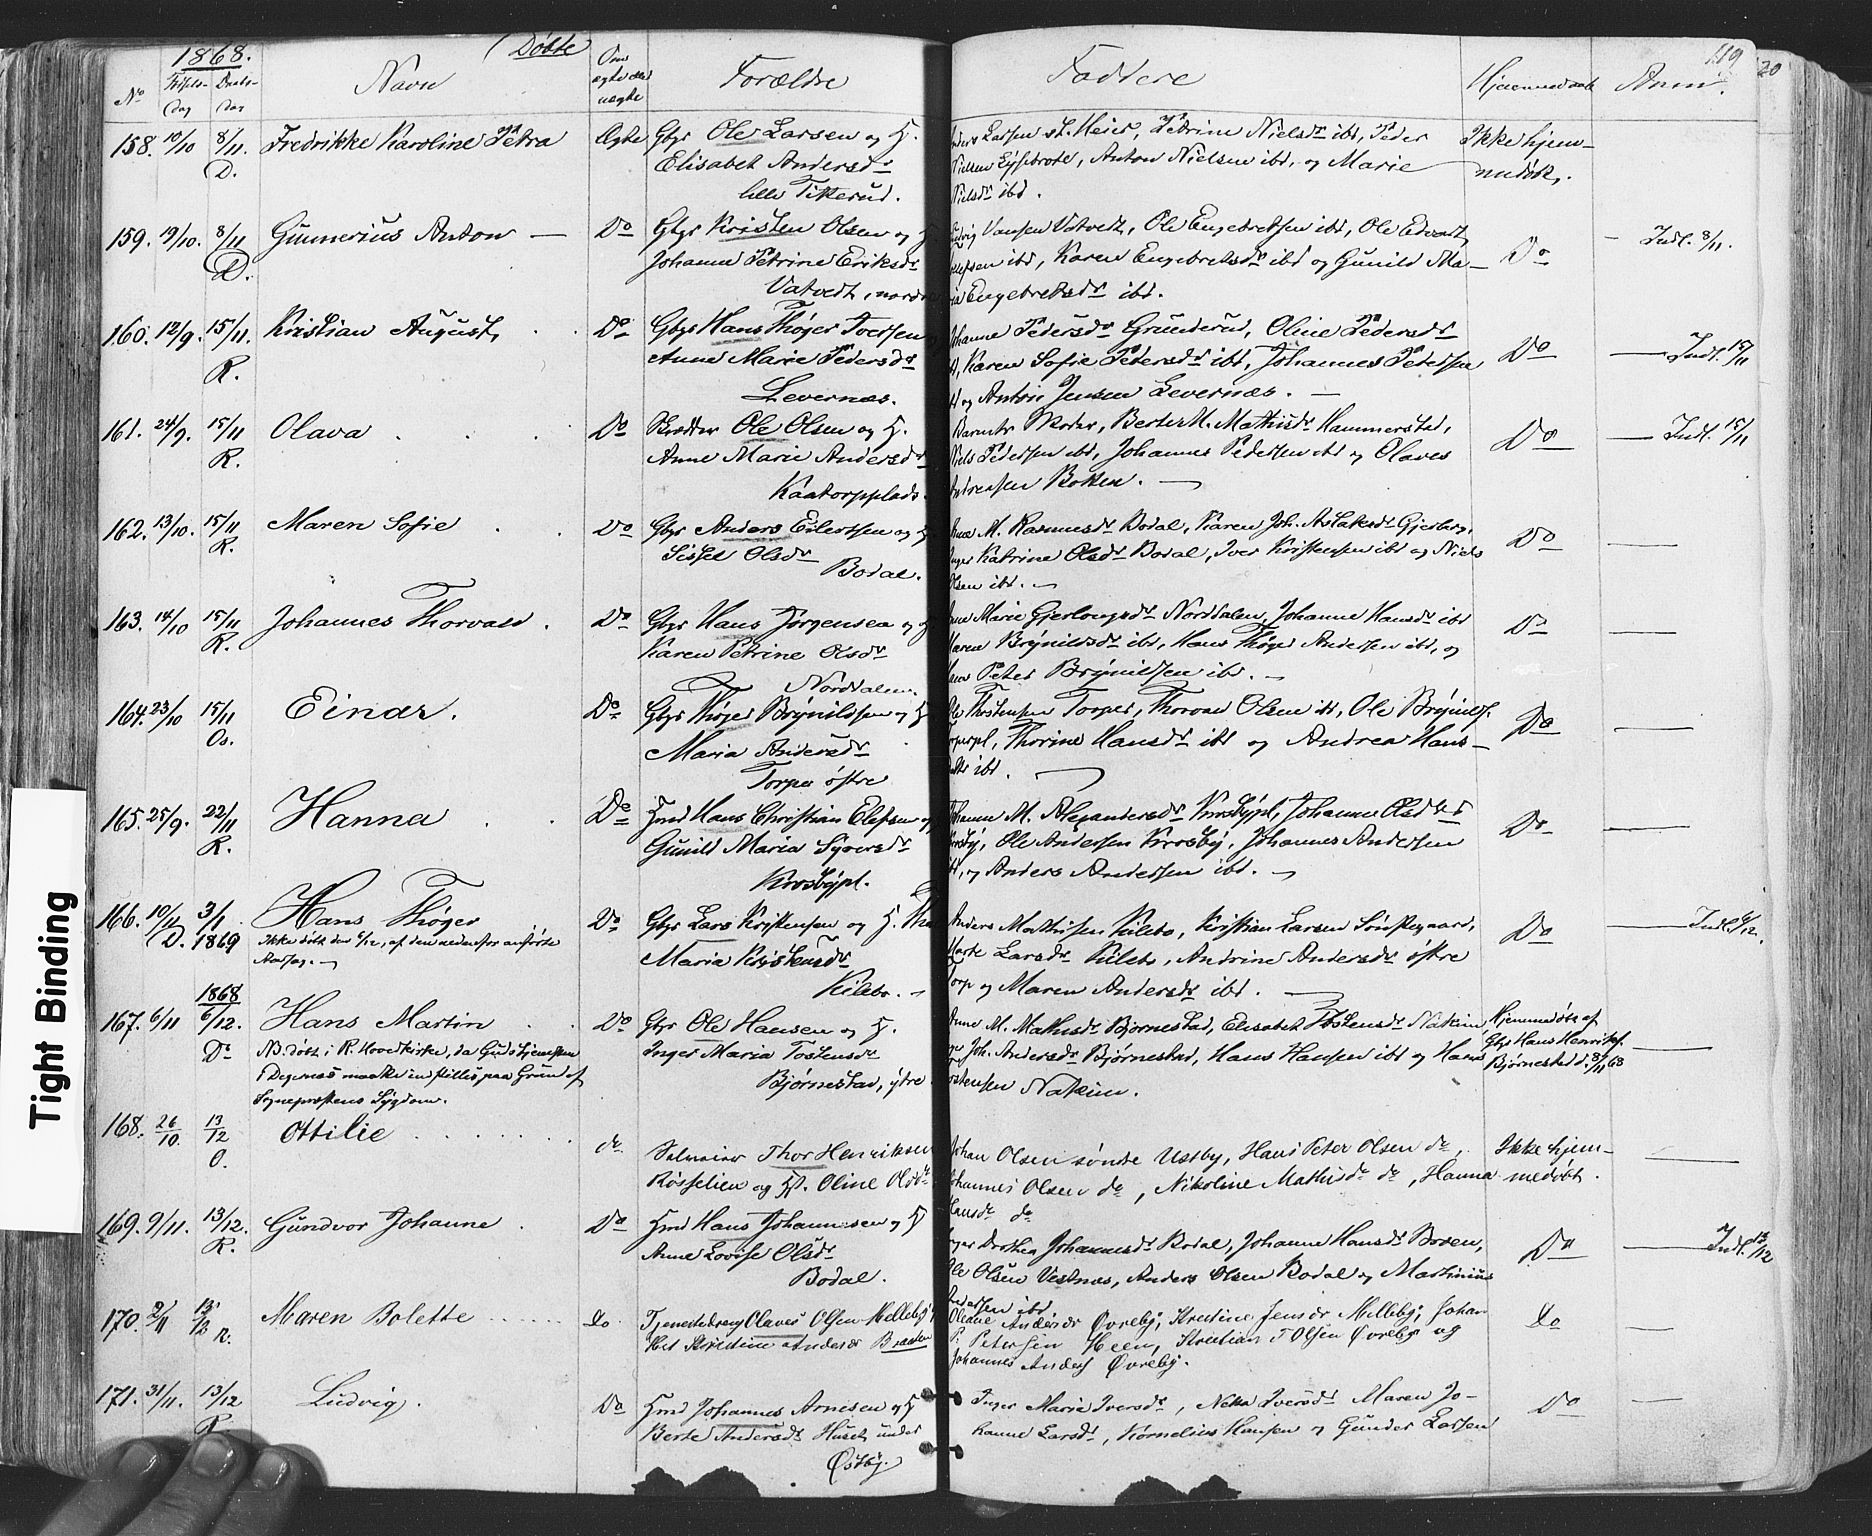 1868.
(Døbte
119
20
No
Fødsels-
dag
Daabs-
dag
Navn
Om
ægte eller
uægte
Forældre
Faddere
Hjemmedaab
Anm.
158. 10/10 8/11 D. Fredrikke Karoline Petra Ægte Gbr Ole Larsen og H.
Elisabet Andersdr
lille Tikerud.
Larsen st. Heier, Petrine Nielsdr ibd, Peder
Nielsen Lysebrote, Anton Nielsen ibd, og Marie
Nielsdr ibd.
Ikke hjem-
medøbt.
159. 19/10. 8/11 D. Gunnerius Anton — Do Gbr Kristen Olsen og H
Johanne Petrine Eriksdr
Vatvedt, nordre
Hansen Vatvedt, Ole Engebretsen ibd, Ole Edvard
ibd, Karen Engebretsdr ibd og Gunild Ma-
ria Engebretsdr ibd.
Do — Indl. 8/11.
160. 12/9. 15/11 R. Kristian August Do Gbr Hans Thøger Iversen
Anne Marie Pedersdr
Levernæs.
Johanne Pedersdr Grunderud, Oline Pedersdr
Karen Sofie Pedersdr ibd, Johannes Pedersen
og Anton Jensen Levernæs. —
Do — Indl. 15/11
161. 24/9. 15/11 R. Olava Do Skrædder Ole Olsen og H.
Anne Marie Andersdr
Kaatorpplads.
Barnets Moder, Berte M. Mathisdr Hammerstad,
Niels Pedersen ibd, Johannes Pedersen ibd og Olaves
Andreasen Bokken. —
Do — Indl. 15/11
162. 13/10. 15/11 R. Maren Sofie Do Gbr Anders Eilertsen og H
Sissel Olsdr
Bodal.
M. Rasmusdr Bodal, Karen Joh. Aslaksdr Gjerberg,
Inger Katrine Olsdr Bodal, Iver Kristensen ibd og Niels
Olsen ibd. —
Do —
163. 14/10 15/11 R. Johannes Thorvald. Do Gbr Hans Jørgensen og H
Karen Petrine Olsdr
Norddalen.
Marie Gjerløugsdr Norddalen, Johanne Hansdr ibd
Maren Brynildsdr ibd, Hans Thøger Andersen ibd, og
Peter Brynildsen ibd. —
Do —
164. 23/10 15/11 Os. Einar. Do Gbr Thøger Brynildsen og H
Maria Andersdr
Torper østre
Ole Thostensen Torper, Thorvald Olsen ibd, Ole Brynilds.
Torperpl, Thorine Hansdr ibd og Andrea Hans-
datter ibd.
Do —
165. 25/9. 22/11 R. Hanna Do Hmd Hans Christian Elefsen og
Gunild Maria Syversdr
Krosbypl.
Johanne M. Alexandersdr Krosbypl, Johanne Olsdtr
Krosby, Ole Andersen Krosby, Johannes Andersen
og Anders Andersen ibd. —
Do —
166. 10/11 D. 3/1 1869 Hans Thøger
Ikke døbt den 6/12, af den nedenfor anførte
Aarsag. —
Do Gbr Lars Kristensen og H.
Maria Kristensdr
Kilebo. —
Anders Mathisen Kilebo, Kristian Larsen Sønstegaard,
Marte Larsdr Kilebo, Andrine Andersdr østre
Torp og Maren Andersdr ibd. —
Do — Indl. 6/12.
1868
167. 6/11 6/12. Do Hans Martin
NB. døbt i R. Hovedkirke, da Gudstjenesten
i Degernæs maatte indstilles paa Grund af
Sognepræstens Sygdom.
Do Gbr Ole Hansen og H.
Inger Maria Tostensdr
Bjørnestad, ytre
Anne M. Mathisdr Bjørnestad, Elisabet Tostensdr Nakkim,
Joh. Andersdr Bjørnestad, Hans Hansen ibd og Hans
Tostensen Nakkim.
Hjemmedøbt af
Gbr Hans Henriks.
Bjørnestad d. 8/11 68
—
168. 26/10. 13/12 O. Ottilie . . . . . . . do Selveier Thor Henriksen
Røsselien og H. Oline Olsdr
Johan Olsen søndre Ustby, Hans Peter Olsen do,
Johannes Olsen do, Nikoline Mathisdr do, Hanna
Hansdr do
Ikke hjem-
medøbt.
—
169. 9/11. 13/12. R. Gundvor Johanne . Do Hmd Hans Johannesen og H
Anne Lovise Olsdr
Bodal.
Inger Dorthea Johannesdr Bodal, Johanne Hansdr Boden,
Ole Olsen Vestnæs, Anders Olsen Bodal og Martinius
Andersen ibd
Do — Indl. 13/12
170. 2/11 13/12 R. Maren Bolette . . . . . . do. Tjenestedreng Olaves Olsen Melleby
Kristine Andersdr Braaten
Oleane Andersdr Øvreby, Kristine Jensdr Melleby, Johan
P. Petersen Heen, Kristian T Olsen Øvreby og
Johannes Anders Øvreby.
do —
171. 31/11. 13/12 R. Ludvig. Do Hmd Johannes Arnesen og H
Berte Andersdr Huset under
Østby.
Inger Marie Iversdr, Netta Iversdr Maren Jo-
hanne Larsdr, Kornelius Hansen og Gunder Larsen
Do —
Tight Binding